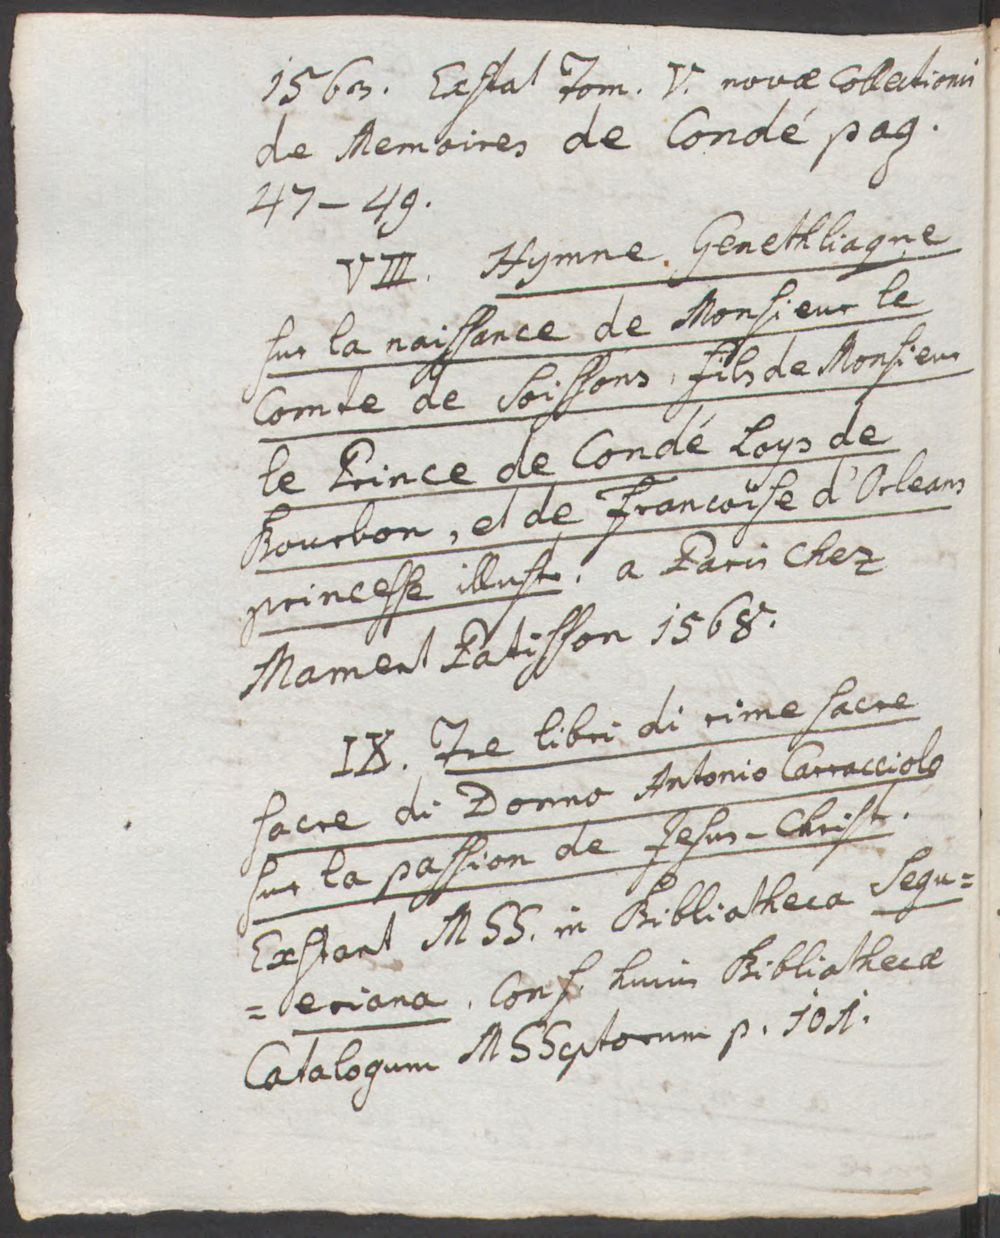 1563. Exstat Tom. V. novæ Collectionis
de Memoires de Condé pag.
47-49.
VIII. Hymne Genethliaqne
sur la naissance de Monsieur le
Comte de Soissons, fils de Monsieur
le Prince de Condé Loys de
Bourbon, et de Francoise d'Orleans
princesse illustr. a Paris chez
Mament Patisson 1568.
IX. Tre libri di rime sacre
sacre di Donno Antonio Carracciolo
sur la passion de Jesus-Christ.
Exstant MSS. in Bibliotheca Segu=
=eriana. Conf. huius Bibliothecæ
Catalogum MSSCptorum p. 101.